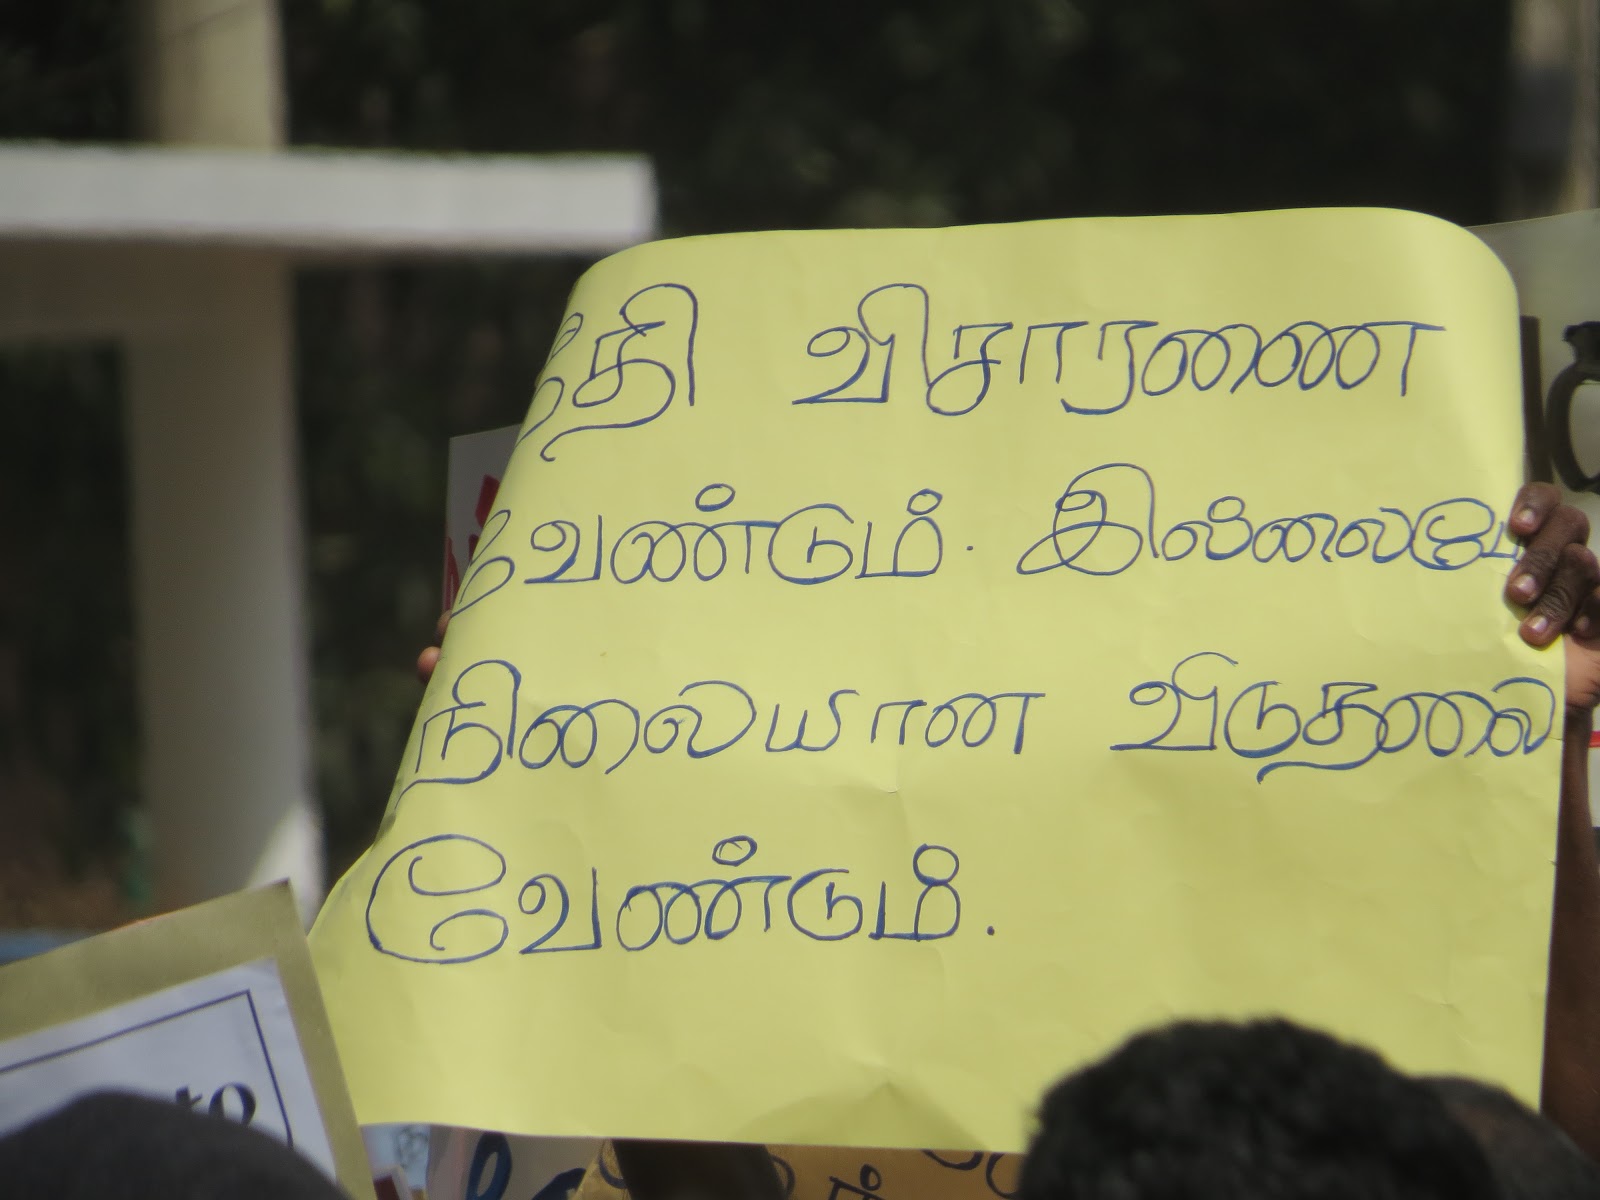 நீதி விசாரணை
வேண்டும். இல்லையே
நிலையான விடுதலை
வேண்டும்.
to